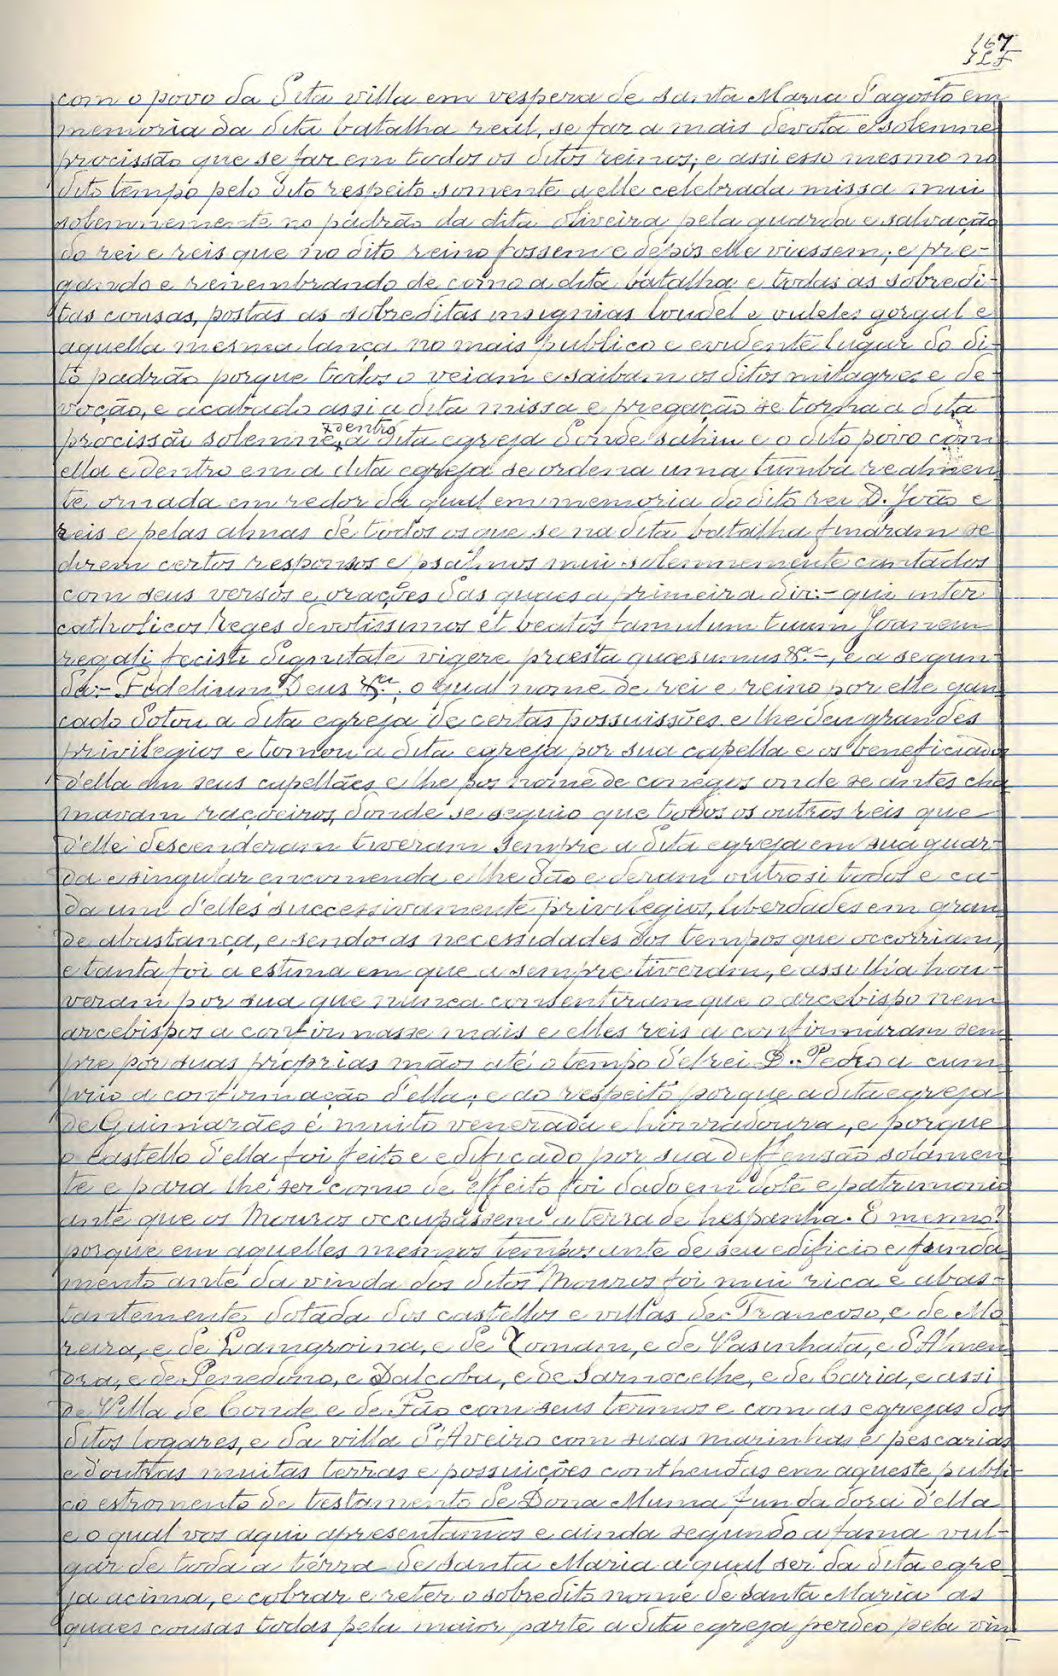 167
com o povo da dita villa em vespera de santa Maria d'agosto em
memoria da dita batalha real, se faz a mais devota e solemne
procissão que se faz em todos os ditos reinos; e assi esso mesmo no
dito tempo pelo dito respeito somente a elle celebrada missa mui
solemnemente no padrão da dita Oliveira pela guarda e salvação
do rei e reis que no dito reino fossem e depois elle viessem; e pre-
gando e remembrando de como a dita batalha e todas as sobredi-
tas cousas, postas as sobreditas insignias loudel e
aquella mesma lança no mais publico e evidente lugar do di-
to padrão porque todos o vejam e saibam os ditos milagres e de-
voção, e acabado assi a dita missa e pregação se torna a dita
procissão solemne dentro a dita egreja donde sahiu e o dito povo com
ella e dentro em a dita egreja se ordena uma tumba realmen-
te ornada em redor da qual em memoria do dito rei D. João e
reis e pelas almas de todos os que se na dita batalha finaram se
dizem certos responsos e psalmos mui solemnemente cantados
com seus versos e orações das quaes a primeira diz:- qui inter
catholicos Reges devotissimos et beatos famulum tuum Joannem
regali fecisti dignitate vigere præsta quæsumus &.ª-, e a segun-
da:- Fidelium Deus &.ª; o qual nome de rei e reino por elle gan-
çado dotou a dita egreja de certas possuissões e lhe deu grandes
privilegios e tomou a dita egreja por sua capella e os beneficiados
d'ella em seus capellães e lhe pos nome de conegos onde se antes cha-
mavam raçoeiros, donde se seguio que todos os outros reis que
d'elle descenderam tiveram sempre a dita egreja em sua guar-
da e singular encomenda e lhe dão e deram outrosi todos e ca-
da um d'elles successivamente privilegios, liberdades em gran-
de abastança, e sendo as necessidades dos tempos que occorriam,
e tanta foi a estima em que a sempre tiveram, e assi lh'a hou-
veram por sua que nunca consentiram que o arcebispo nem
arcebispos a confirmasse mais e elles reis a confirmaram sem-
pre por suas proprias mãos até o tempo d'elrei D. Pedro a cum-
prio a confirmação d'ella; e ao respeito porque a dita egreja
de Guimarães é muito venerada e honradoura, e porque
o castello d'ella foi feito e edificado por sua deffensão solamen-
te e para lhe ser como de effeito foi dado em dote e patrimonio
ante que os Mouros occupassem a terra de hespanha. E mesmo?
porque em aquelles mesmos tempos ante de seu edificio e funda-
mento ante da vinda dos ditos Mouros foi mui rica e abas-
tantemente dotada dos castellos e villas de Trancoso, e de Mo-
reira, e de Lamgroina, e de Tomam, e de Vasinhata, e d'Almen-
dra, e de Penedono, e Dalcoba, e de Sarnocelhe, e de Caria, e assi
de Villa de Conde e de Fão com seus termos e com as egrejas dos
ditos logares, e da villa d'Aveiro com suas marinhas e pescarias
e d'outras muitas terras e possuições conthendas em aqueste publi-
co estromento de testamento de Dona Muma fundadora d'ella
e o qual vos aqui apresentamos e ainda segundo a fama vul-
gar de toda a terra de santa Maria a qual ser da dita egre-
ja acima, e cobrar e reter o sobredito nome de santa Maria as
quaes cousas todas pela maior parte a dita egreja perdeo pela vin-